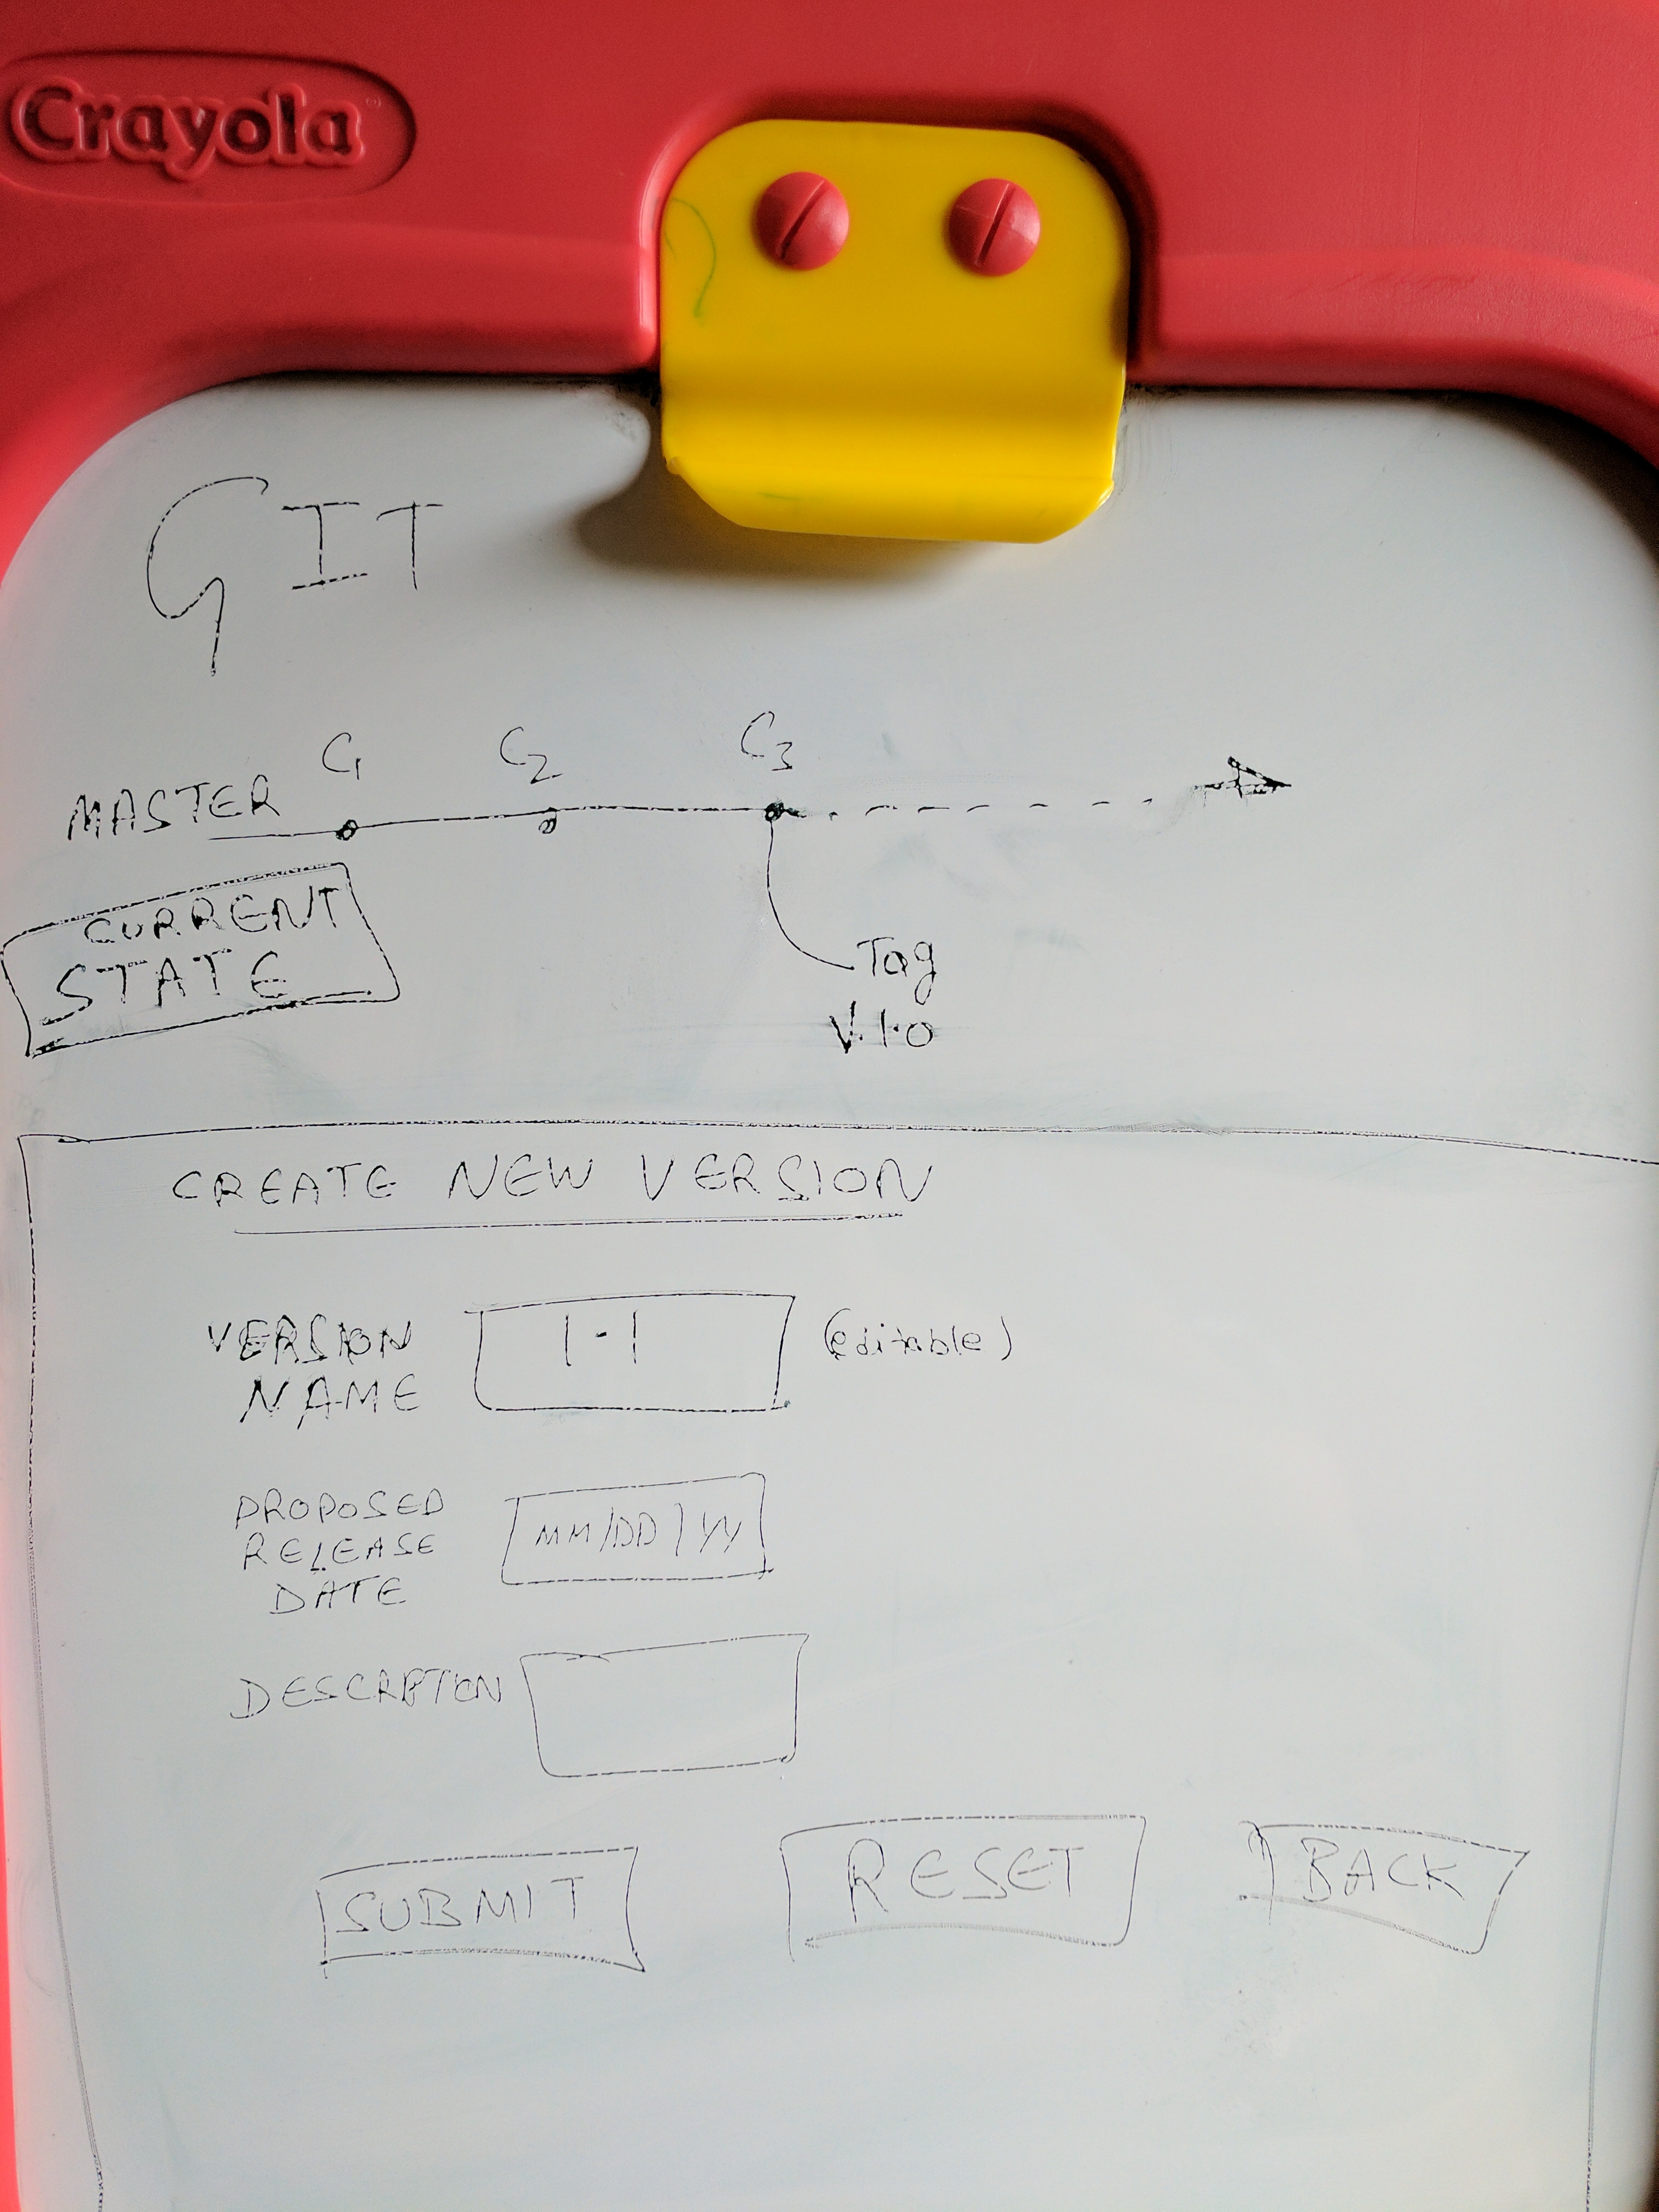 Crayola
GIT
C1 C2 C3
MASTER
CURRENT
STATE
Tag
V.1.0
CREATE NEW VERSION
VERSION NAME 1.1 (editable)
PROPOSED RELEASE DATE MM/DD/YY
DESCRIPTION
SUBMIT RESET BACK